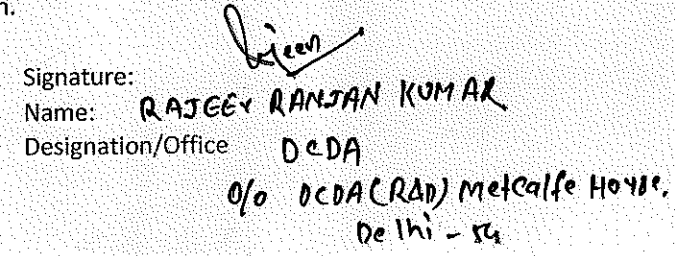 n.
Signature: Rajeev
Name: RAJEEV RANJAN KUMAR
Designation/Office DCDA
O/o DCDA (R&D) Metcalfe House,
Delhi - 54